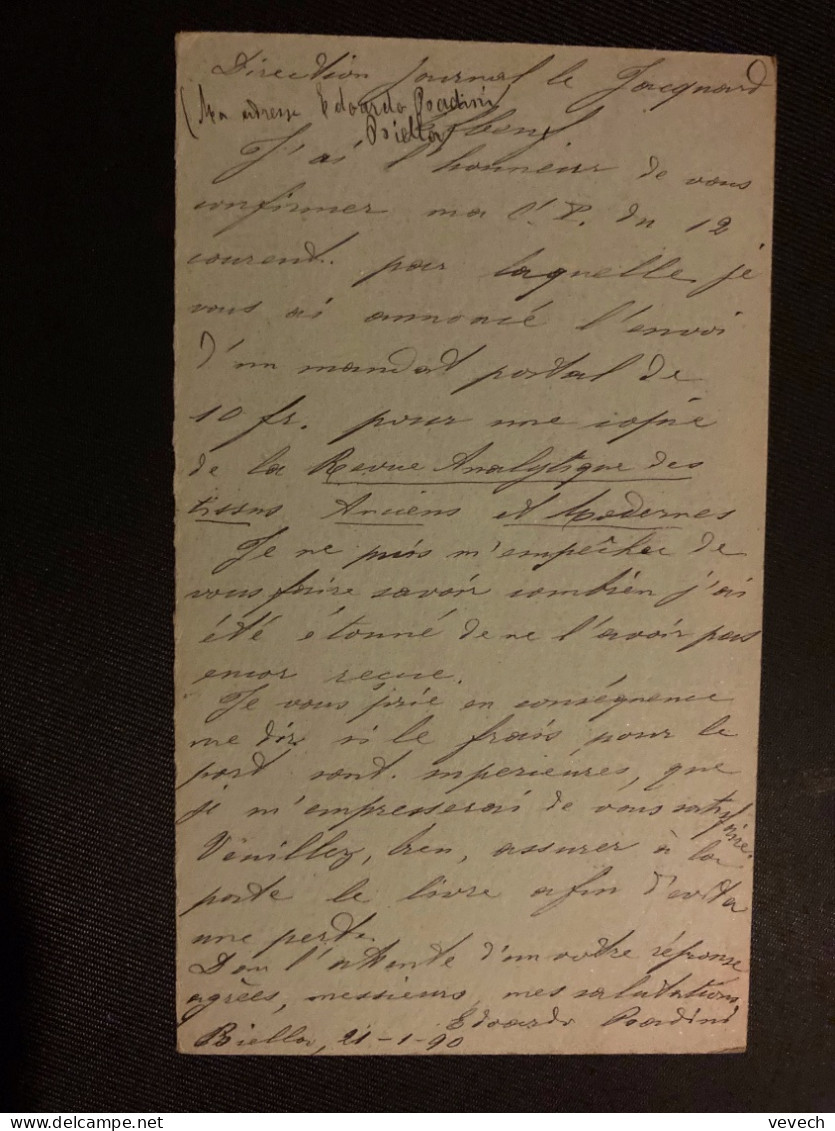 Direction Journal le Jacquard
(Ma adresse Edoardo Poadini
Biella) Elbeuf
J'ai l'honneur de vous
confirmer ma C. P. du 12
courent. par laquelle je
vous ai annoncé l'envoi
d'un mandat postal de
10 fr. pour une copie
de la Revue Analytique des
tissus Anciens et Modernes
Je ne puis m'empêcher de
vous faire savoir combien j'ai
été étonné de ne l'avoir pas
encor reçue.
Je vous prie en conséquence
me dir si le frais pour le
port sont superieures, que
je m'empresserai de vous satisfaire.
Veuillez, bien, assurer à la
poste le livre afin d'eviter
une perte.
Dan l'attente d'un votre réponse
agrées, messieurs, mes salutations.
Edoardo Poadini
Biella, 21-1-90
vevech